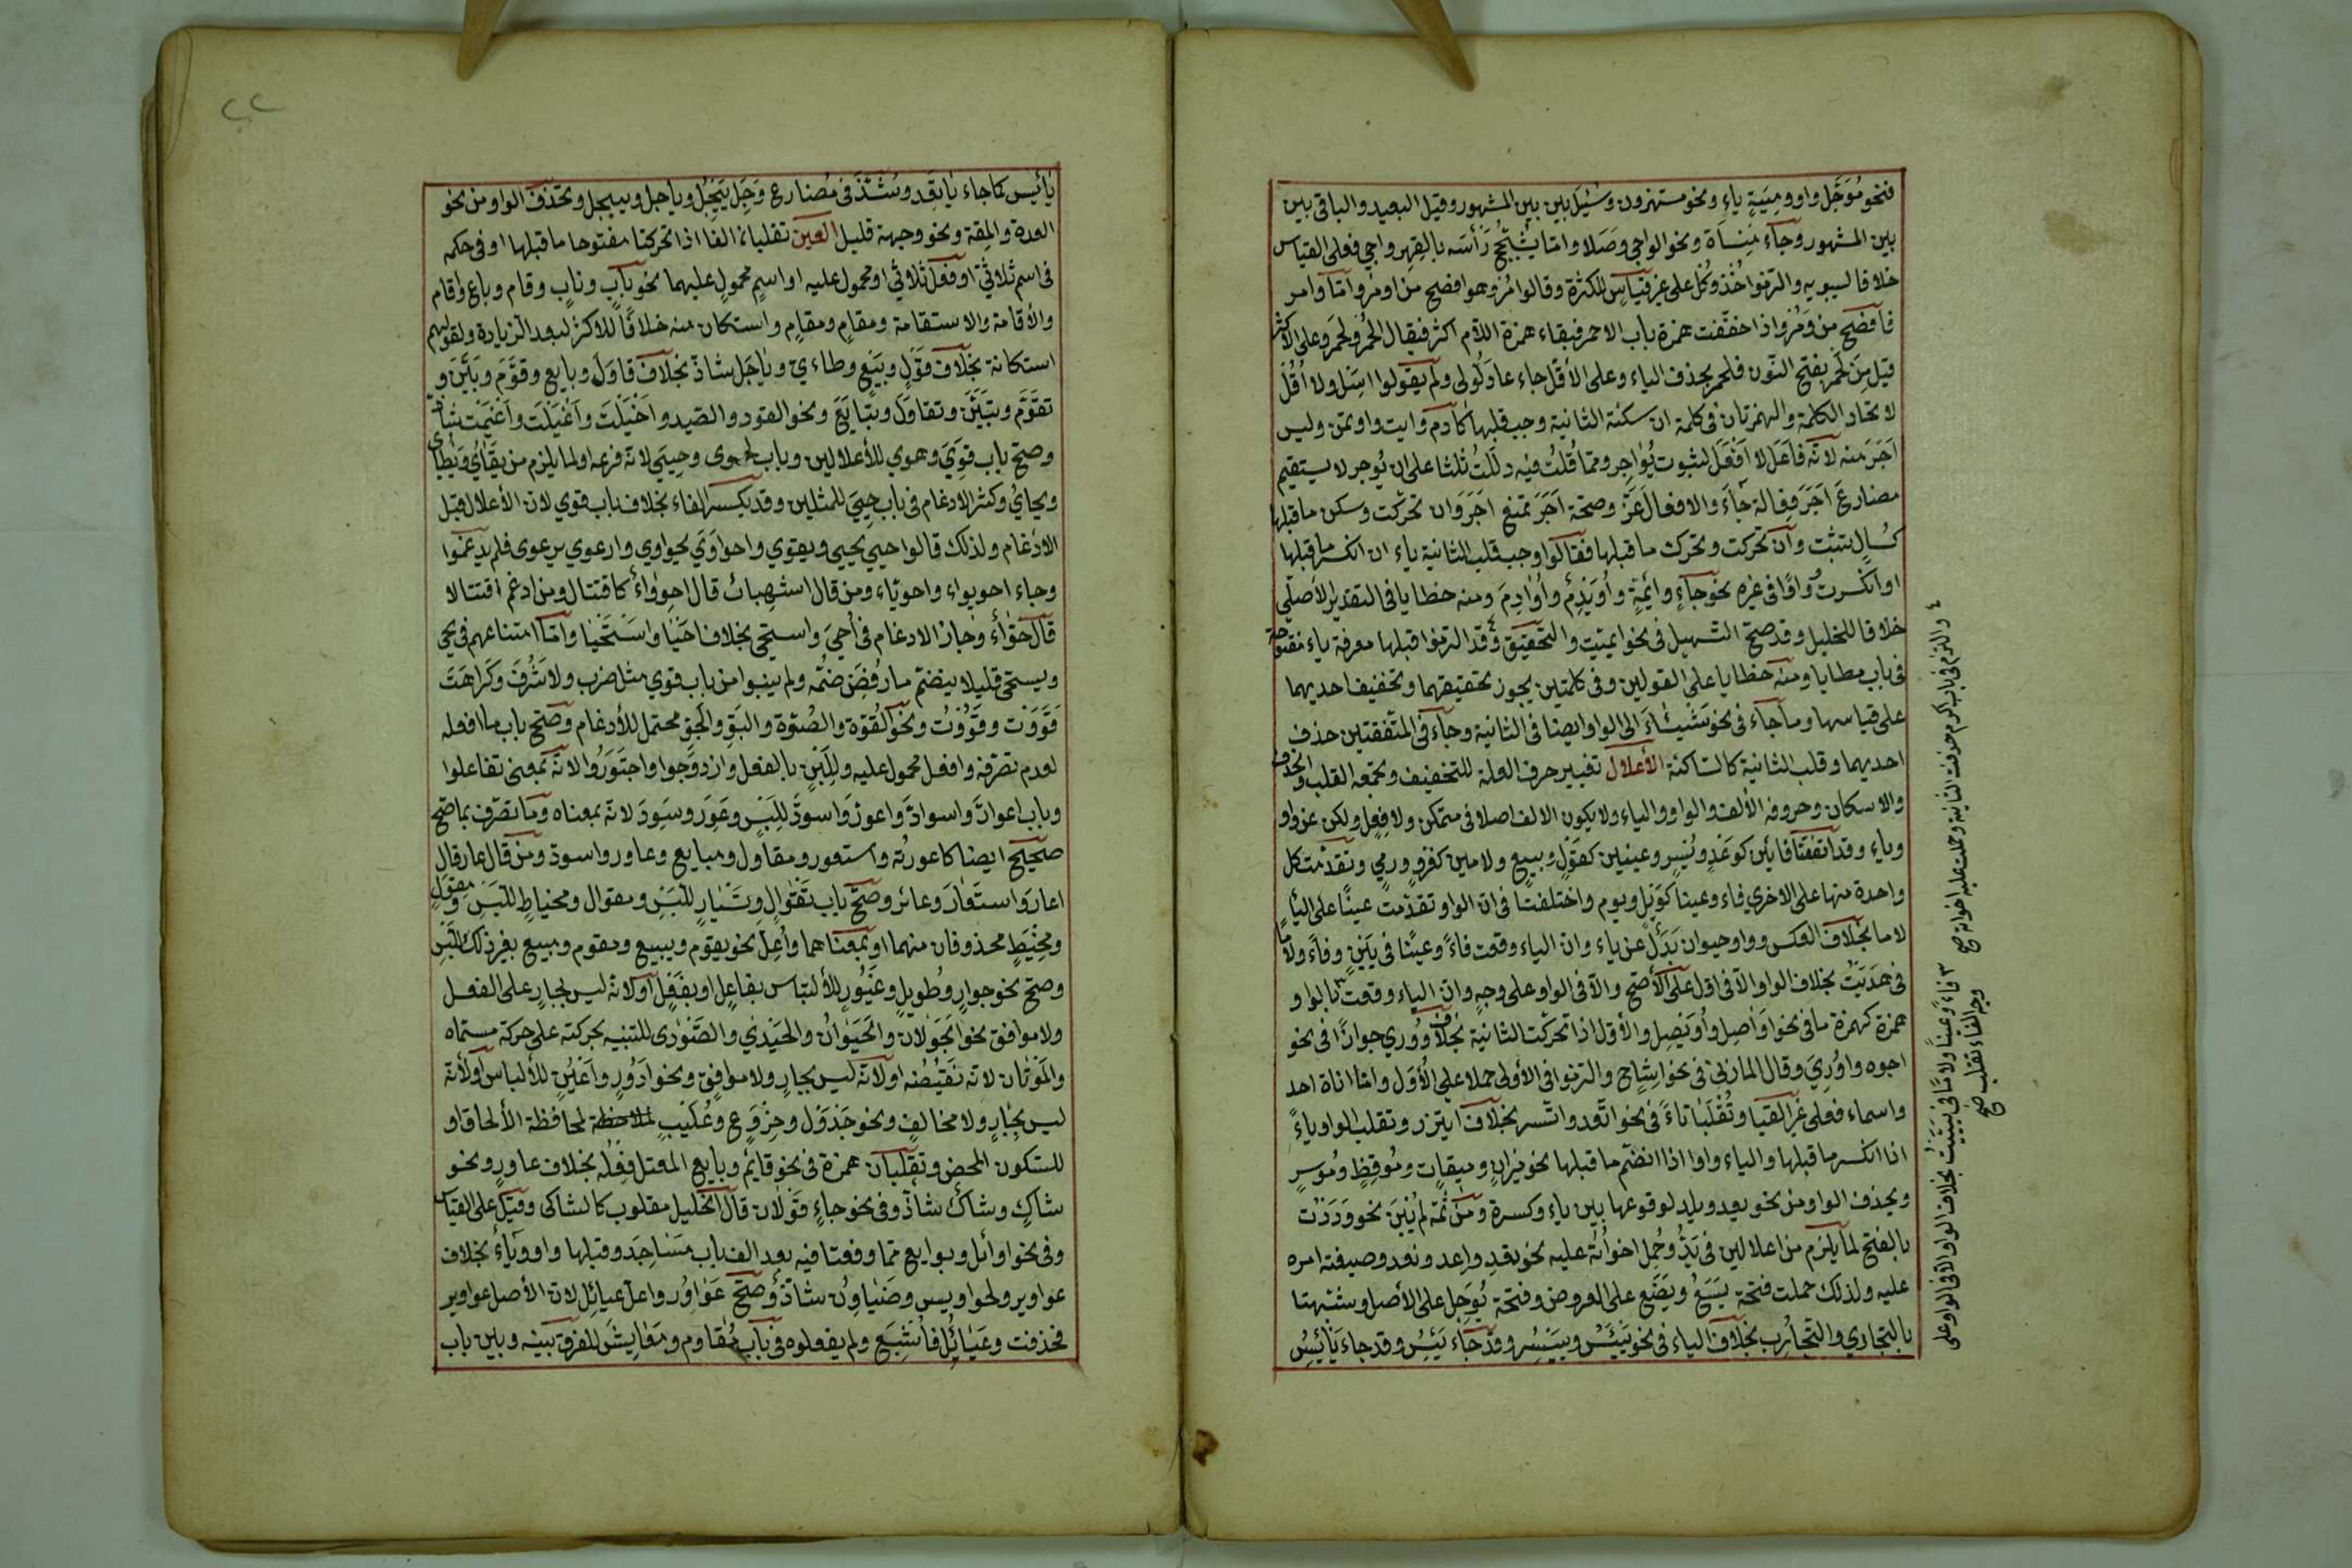 فنحو مُوَجَّل واو ومِيَيةٍ ياءٍ ونحو مستهزون وسُئِل بين بين المشهور وقيل البعيد والباقى بين
بين المشهور وجآء مِنسَاة ونحو الواجى وصَلا واما يُشَجِّج رَأسَه بالفِهر واجى فعلى القياس
خلافا لسيبويه والتزموا خُذ وكُل على غير قياس للكثرة وقالوا مُر وهو افصح من اومُر واما وامر
فافصح من ومُر واذا خففت همزة باب الاحمر فبقاء همزة اللآم اكثر فيقال الحمر ولحمر وعلى الاكثر
قيل مِنَ لَحمر بفتح النّون فلحمر بحذف الياء وعلى الأقل جاء عاد لُولى ولم يقولوا اسَل ولا اقُل
لاتحاد الكلمة والهمزتان فى كلمة ان سكنة الثانية وجب قلبها كآدم وايت واوتمن وليس
آجَرَ منه لانّه فاعَل لا اَفعَل لثبوت يُؤاجِر ومما قُلتُ فيه دلَلتُ ثلثا على ان يُوجر لا يستقيم
مضارعَ آجَرَ فِعالة جَاءَ والافعال عَزّ وصحة آجَرَ تمنع آجَرَ وان تحركت وسكن ما قبلها
كسَال تثبت وان تحركت وتحرك ما قبلها فقالوا وجب قلب الثانية ياء ان انكسر ما قبلها
او انكسرت وواوًا فى غيره نحو جآءٍ وائمةٍ واُوَيدِم واَوَادِمَ ومنه خطايا فى التقدير الاصلى
خلافا للخليل وقد صح التسهيل فى نحو ايمّة والتحقيق وقد التزموا قبلها معرفة ياء مفتوحة
فى باب مطايا ومنه خطايا على القولين وفى كلمتين يجوز تحقيقهما وتخفيف احديهما
على قياسها وما جاء فى نحو يَشَاءُ الى الواو ايضا فى الثانية وجآء فى المتفقتين حذف
احديهما وقلب الثانية كالساكنة الأعلال تغيير حرف العلة للتخفيف وتجمعه القلب والحذف
والاسكان وحروفه الألف والواو والياء ولا يكون الالف اصلا فى متمكن ولا فِعلٍ ولكن عن واو
وياءٍ وقد اتفقتا فائين كوَعدٍ ويُسرٍ وعينين كقَولٍ وبيعٍ ولامين كغزوٍ ورمىٍ وتقدّمت كل
واحدة منها على الاخرى فاء وعينا كوَيلٍ ويوم واختلفتا فى ان الواو تقدّمت عينًا على الياءِ
لاما بخلاف العكس وواو حيوان بَدَلٌ عن ياء وان الياء وقعت فاءً وعينًا فى يَيَنٍ وفاءً ولاما
فى يَدَيتُ بخلاف الواو الآ فى اوّل على الأصّح والآ فى الواو على وجهٍ وان الياء وقعت ٣ بالواو
همزة كهمزة ما فى نحو اَوَاصِل واُوَيصِل والأول اذا تحركت الثانية بخلاف وُورى جوازًا فى نحو
اجوه واُورِىَ وقال المازنى فى نحو اِشَاح والتزموا فى الأولى حملا على الأُوَل واما اناة احد
واسماء فعلى غير القياس وتُقلَبانِ تاءً فى نحو اتّعد واتّسر بخلاف ايتزر وتقلب الواو ياءً
اذا انكسر ما قبلها والياء واوا اذا انضم ما قبلها نحو ميزانٍ وميقاتٍ ومُوقِظٍ ومُوسرٍ
ويحذف الواو من نحو يعد ويلد لوقوعها بين ياء وكسرة ومن ثمّة لم يُبنَ نحو وَدَدتُ
بالفتح لما يلزم من اعلالين فى يَدُّ وحُمِل اخواته عليه نحو تعد واعد ونعد وصيغته امره
عليه ولذلك حملت فتحة يَسَعُ ويَضَع على العروض وفتحة يُوجَل على الأصل وشبّهتا
بالتجارى والتجارب بخلاف الياء فى نحو يَيئَس ويَيسِر وقد جاء يَئِس وقد جاء يَائِسُ
٤ والتزم فى باب اكرم حذفت الثانية وحملت عليه اخواته صح
٣ فاءً وعينا ولامًا فى يَيَّيتُ بخلاف الواو الآ فى الواو على
وجه الفاء تقلب صح
٢٢
يَائيس كما جاء يَاتَعِد وشذّ فى مضارع وَجِل يَيجَل وياجل وييجل وتحذف الواو من نحو
العدة والمِقة ونحو وجهة قليل العين تقلبان الفا اذا تحركتا مفتوحا ما قبلها او فى حكمه
فى اسم ثلاثىّ او فعل ثلاثي او محمول عليه او اسمٍ محمولٍ عليهما نحو بَابٍ ونابٍ وقام وباع واقام
والأقامة والاستقامة ومقامٍ ومقامٍ واستكان منه خلافًا للاكثر لبعد الزيادة ولقولهم
استكانة بخلاف قَولٍ وبَيعٍ وطاءىّ وياجَل شاذّ بخلاف قاوَلَ وبايع وقوَّم وبَيَّنَ و
تقَوَّم وتبَيَّنَ وتقاوَلَ وتبَايَعَ ونحو القود والصّيد واَخيَلَت واَغيَلَت واَغيَمَت شاذّ
وصح باب قوِيَ وهوى للأعلالين وباب طوى وحيِيَ لانّه فرعه او لما يلزم من يقَاىُ ويَطَاىُ
ويحاىُ وكثر الادغام فى باب حيِيَ للمثلين وقد يكسر الفاء بخلاف باب قوى لان الأعلال قبل
الادغام ولذلك قالوا حيِي يحيى ويقوى واحواوَى يحواوى وارعوى يرعوى فلم يدغموا
وجاء احويواء واحويّاء ومن قال اشهباب قال احوِوَاء كاقتتال ومن ادغم اقتتالا
قال حِوّاء وجاز الادغام فى اُحيِيَ واستحيى بخلاف احيَا واستَحيَا واما امتناعهم فى يحيى
ويستحى قليلا ينضم ما رُفِضَ ضمّه ولم يبنوا من باب قوى مثل ضرب ولا شَرُف كراهَة
قَوَوت وقَوُوت ونحو القُوّة والصُوّة والبَوّ والجَوّ محتمل للأدغام وصح باب ما افعله
لعدم تصرّفه وافعل محمول عليه وللّبس بالفعل وازدوَجوا واجتَوَرُوا لانّه بمعنى تفاعلوا
وباب اعوارّ واسوادّ واعورّ واسودّ لِلّبسِ وعَوِر وسَوِد لانّه بمعناه وما تصرّف بما صح
صحيح ايضا كاعورته واستعور ومقاول ومبايع وعاور واسود ومن قال عار قال
اعار واستعار وعائر وصح باب تَقوَال وتَسيَار للّبسِ ومقوال ومخياط للّبسِ ومِقوَلٍ
ومِخيَطٍ محذوفان منهما او بمعناهما واُعِلّ نحو يقوم ويبيع ومقوم ومبيع بغير ذلك للّبس
وصح نحو جوادٍ وطَويلٍ وغَيُورٍ للألباس بفاعِلٍ او بفَعَلٍ او لانه ليس بجارٍ على الفعل
ولا موافق نحو الجَوَلان والحَيَوَان والحَيَدى والصَّوَرى للتنبيه بحركته على حركة مسماه
والمَوَتان لانه نقيضه او لانّه ليس بجارٍ ولا موافقٍ ونحو ادوُرٍ واَعيُنٍ للألباس او لانه
ليس بجارٍ ولا مخالفٍ ونحو جَدوَل وخِروَع وعُليَبٍ لمحافظة الألحاق او
للسّكون المحض وتقلبان همزة فى نحو قائم وبايع المعتل فعله بخلاف عاورٍ ونحو
شاكٍ وشاكٌ شاذّ وفى نحو جاءٍ قولان قال الخليل مقلوب كالشاكى وقيل على القياس
وفى نحو اوائل وبوايع مما وقعتا فيه بعد الف باب مسَاجِدَ وقبلها واو وياءٌ بخلاف
عواوير وطواويس وضيَاوِن شاذّ وصح عَوَاوِر واعلّ عيائيل لان الأصل عواوير
فحذفت وعيَائِل فاُشبِع ولم يفعلوه فى باب مقاوم ومعايش للفرق بينه وبين باب